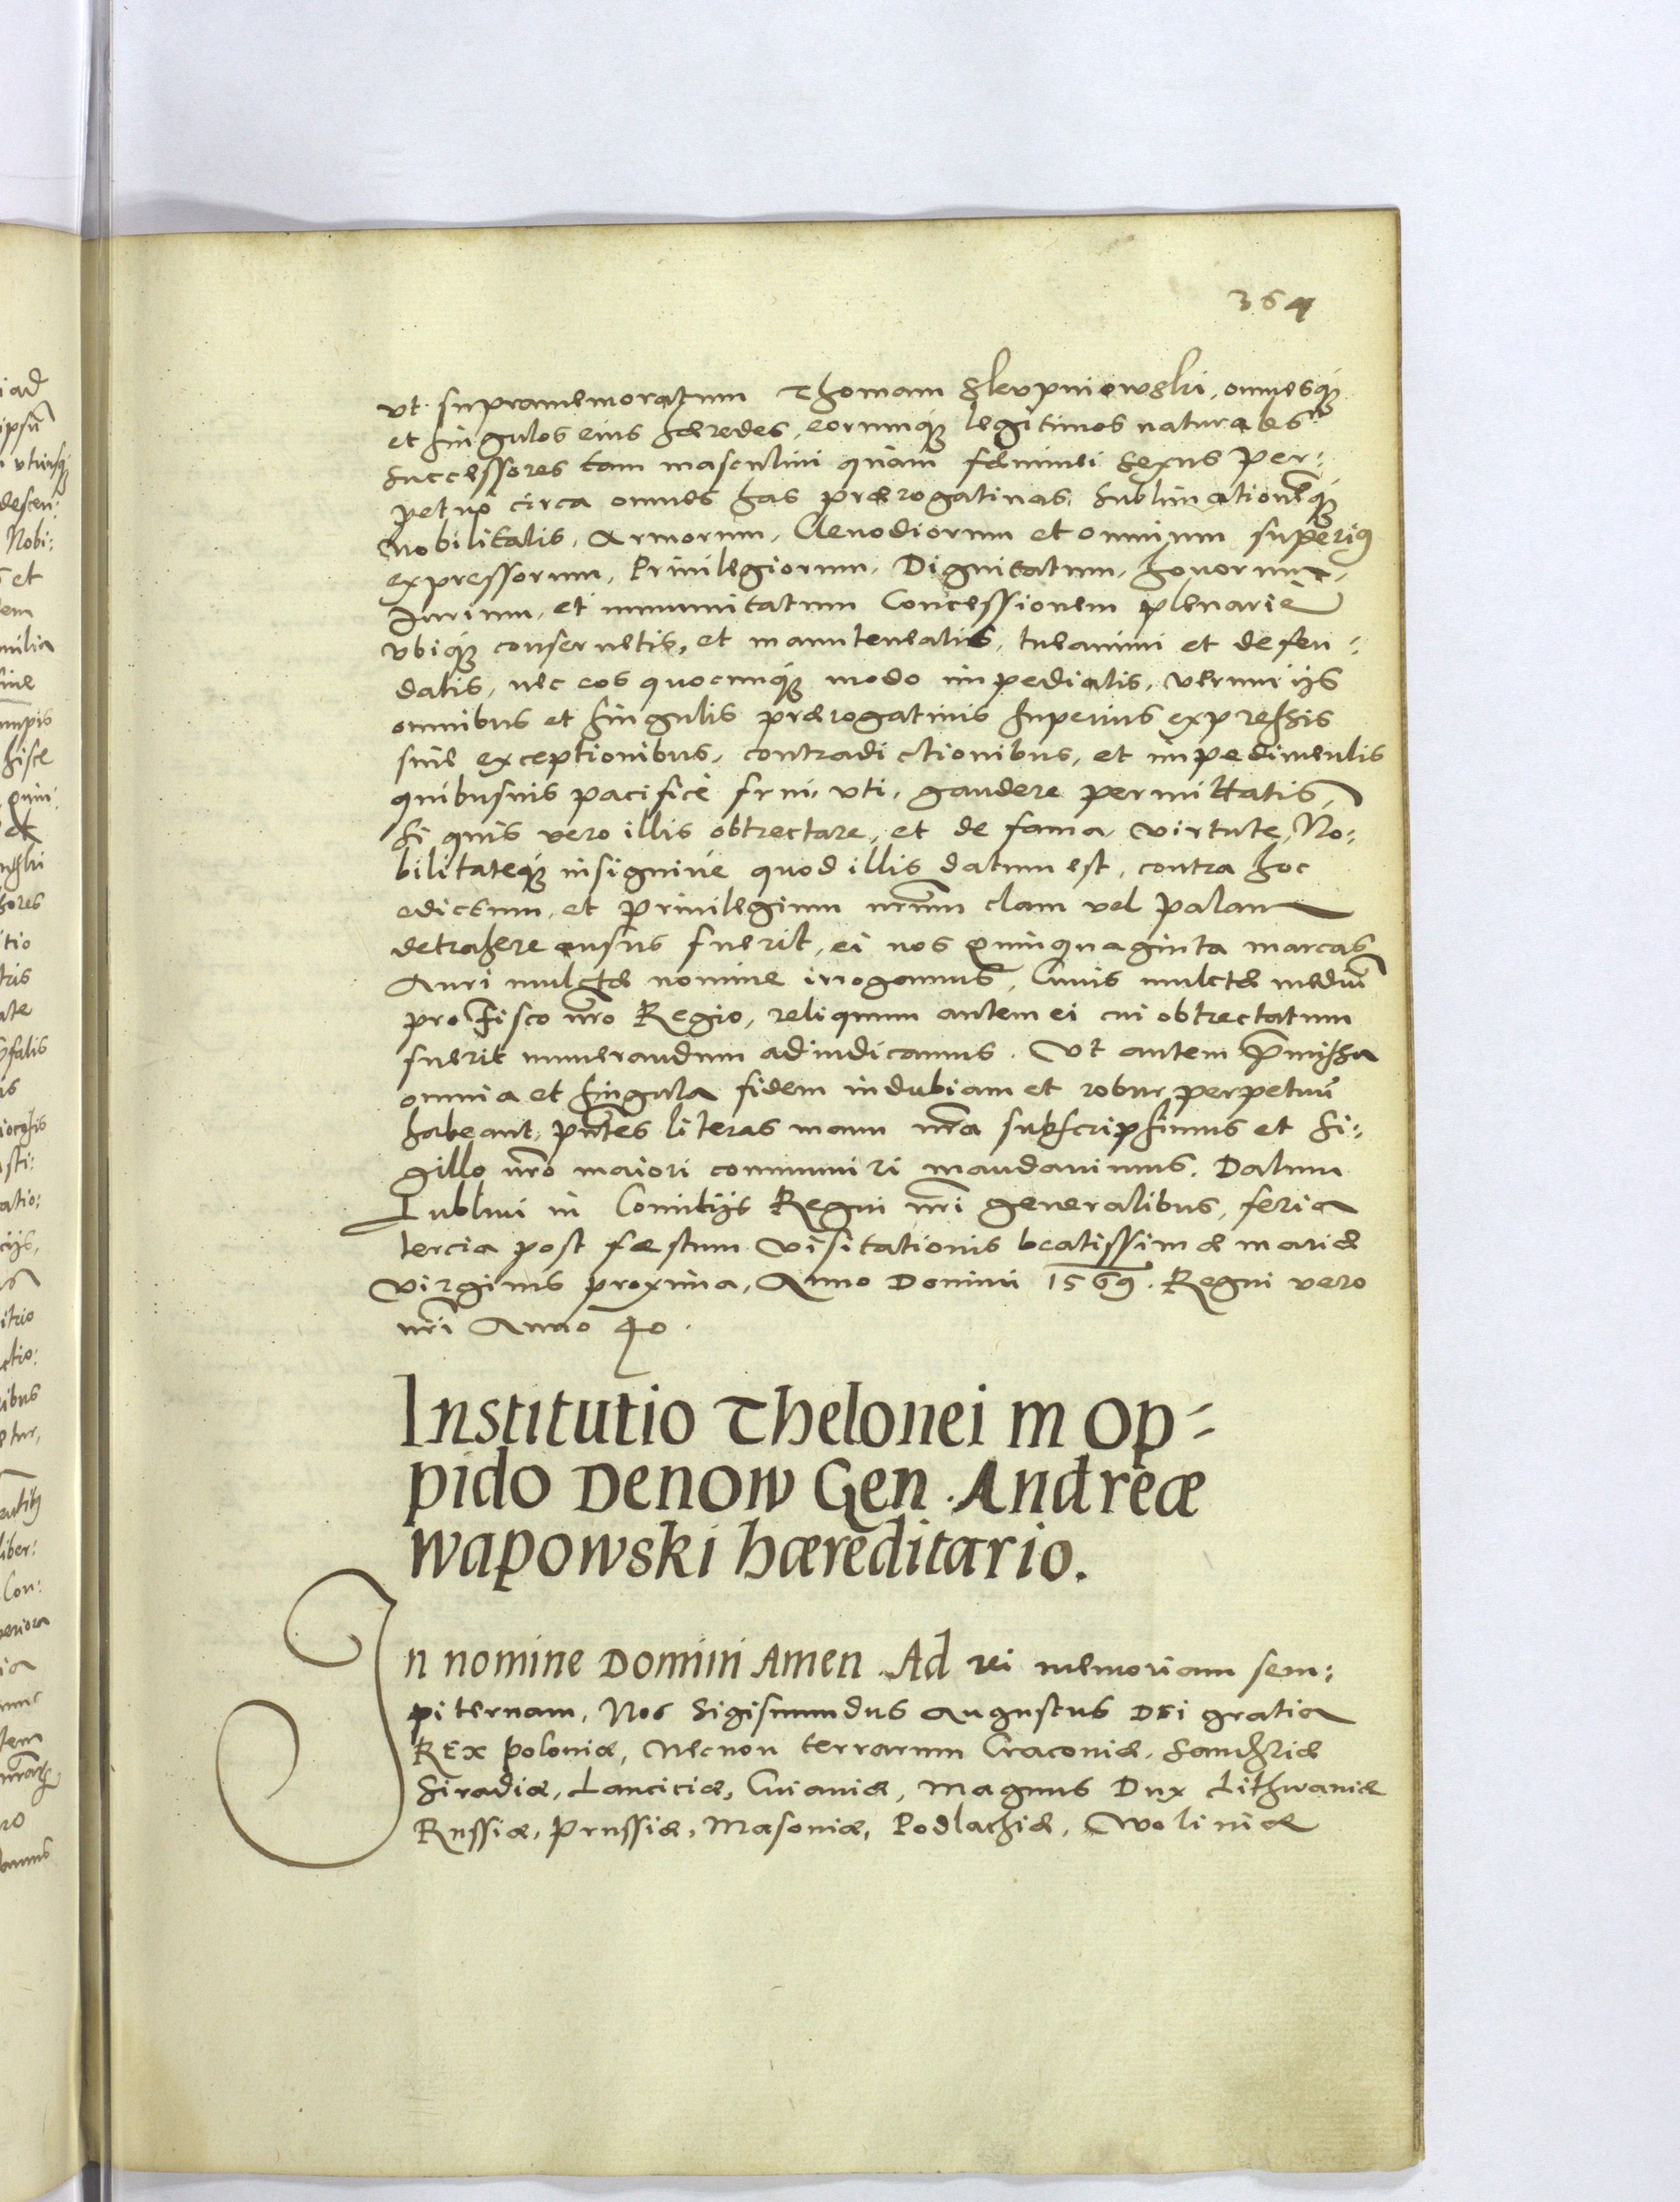 364
vt supramemoratum Thomam Skupniewski, omnesq́ꝫ
et singulos eius hæredes, eorumq́ꝫ legitimos naturales
successores tam masculini quam fæminei sexus per:
petuo circa omnes has prærogatiuas, sublimationeq́ꝫ
nobilitatis, Armorum, Clenodiorum et omnium superiꝰ
expressorum, Priuilegiorum, Dignitatum, honorum,
Iurium, et immunitatum Concessionem plenarie
vbiq́ꝫ conseruetis, et manuteneatis, tueamini et defen:
datis, nec eos quocunq́ꝫ modo impediatis, verum ijs
omnibus et singulis prærogatiuis superius expressis
sine exceptionibus, contradictionibus, et impedimentis
quibusuis pacifice frui, vti, gaudere permittatis,
Si quis vero illis obtrectare, et de fama, virtute, No:
bilitateq́ꝫ insigniue quod illis datum est, contra hoc
edictum, et priuilegium nr̃um clam vel palam
detrahere ausus fuerit, ei nos quinquaginta marcas
Auri mulctæ nomine irrogamus, Cuius mulctæ mediũ
pro Fisco nr̃o Regio, reliquum autem ei cui obtrectatum
fuerit numerandum adiudicamus. Vt autem p̃missa
omnia et singula fidem indubiam et robur perpetuũ
habeant, pñtes literas manu nr̃a subscripsimus et si:
gillo nr̃o maiori communiri mandauimus. Datum
Lublini in Comitijs Regni nr̃i generalibus, feria
tercia post fæstum Visitationis beatissimæ mariæ
virginis proxima, Anno Domini 1569. Regni vero
nr̃i Anno 40.
Institutio Thelonei in Op-
pido Denow Gen. Andreæ
Wapowski hæreditario.
In nomine Domini Amen. Ad rei memoriam sem:
piternam, Nos Sigismundus Augustus Dei gratia
REx Poloniæ, Necnon terrarum Cracouiæ, Sandr̃iæ
Siradiæ, Lanciciæ, Cuiauiæ, Magnus Dux Lithwaniæ
Russiæ, Prussiæ, Masouiæ, Podlachiæ, Woliniæ